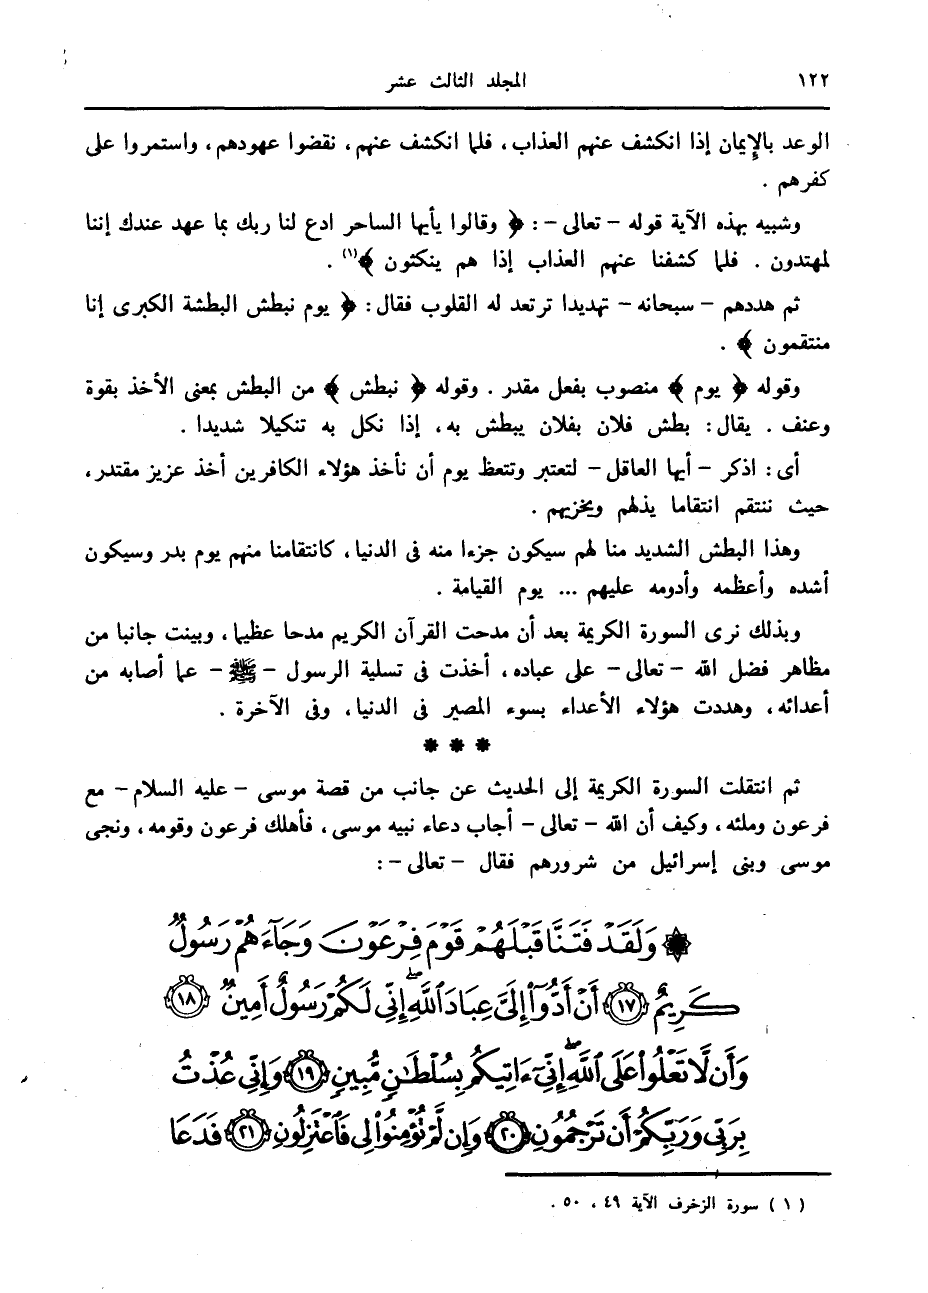 ١٢٢ المجلد الثالث عشر
الوعد بالإيمان إذا انكشف عنهم العذاب، فلما انكشف عنهم، نقضوا عهودهم، واستمروا على
كفرهم .
وشبيه بهذه الآية قوله - تعالى -: ﴿ وقالوا يأيها الساحر ادع لنا ربك بما عهد عندك إننا
لمهتدون . فلما كشفنا عنهم العذاب إذا هم ينكثون ﴾(١) .
ثم هددهم - سبحانه - تهديدا ترتعد له القلوب فقال: ﴿ يوم نبطش البطشة الكبرى إنا
منتقمون ﴾ .
وقوله ﴿ يوم ﴾ منصوب بفعل مقدر . وقوله ﴿ نبطش ﴾ من البطش بمعنى الأخذ بقوة
وعنف . يقال: بطش فلان بفلان يبطش به، إذا نكل به تنكيلا شديدا .
أى: اذكر - أيها العاقل - لتعتبر وتتعظ يوم أن نأخذ هؤلاء الكافرين أخذ عزيز مقتدر،
حيث ننتقم انتقاما يذلهم ويخزيهم .
وهذا البطش الشديد منا لهم سيكون جزءا منه فى الدنيا، كانتقامنا منهم يوم بدر وسيكون
أشده وأعظمه وأدومه عليهم ... يوم القيامة .
وبذلك نرى السورة الكريمة بعد أن مدحت القرآن الكريم مدحا عظيما، وبينت جانبا من
مظاهر فضل الله - تعالى - على عباده، أخذت فى تسلية الرسول - ﷺ - عما أصابه من
أعدائه، وهددت هؤلاء الأعداء بسوء المصير فى الدنيا، وفى الآخرة .
* * *
ثم انتقلت السورة الكريمة إلى الحديث عن جانب من قصة موسى - عليه السلام - مع
فرعون وملئه، وكيف أن الله - تعالى - أجاب دعاء نبيه موسى، فأهلك فرعون وقومه، ونجى
موسى وبنى إسرائيل من شرورهم فقال - تعالى -:
۞ وَلَقَدْ فَتَنَّا قَبْلَهُمْ قَوْمَ فِرْعَوْنَ وَجَآءَهُمْ رَسُولٌ
كَرِيمٌ ١٧ أَنْ أَدُّوٓا۟ إِلَىَّ عِبَادَ ٱللَّهِ ۖ إِنِّى لَكُمْ رَسُولٌ أَمِينٌ ١٨
وَأَن لَّا تَعْلُوا۟ عَلَى ٱللَّهِ ۖ إِنِّىٓ ءَاتِيكُم بِسُلْطَٰنٍ مُّبِينٍ ١٩ وَإِنِّى عُذْتُ
بِرَبِّى وَرَبِّكُمْ أَن تَرْجُمُونِ ٢٠ وَإِن لَّمْ تُؤْمِنُوا۟ لِى فَٱعْتَزِلُونِ ٢١ فَدَعَا
(١) سورة الزخرف الآية ٤٩، ٥٠ .